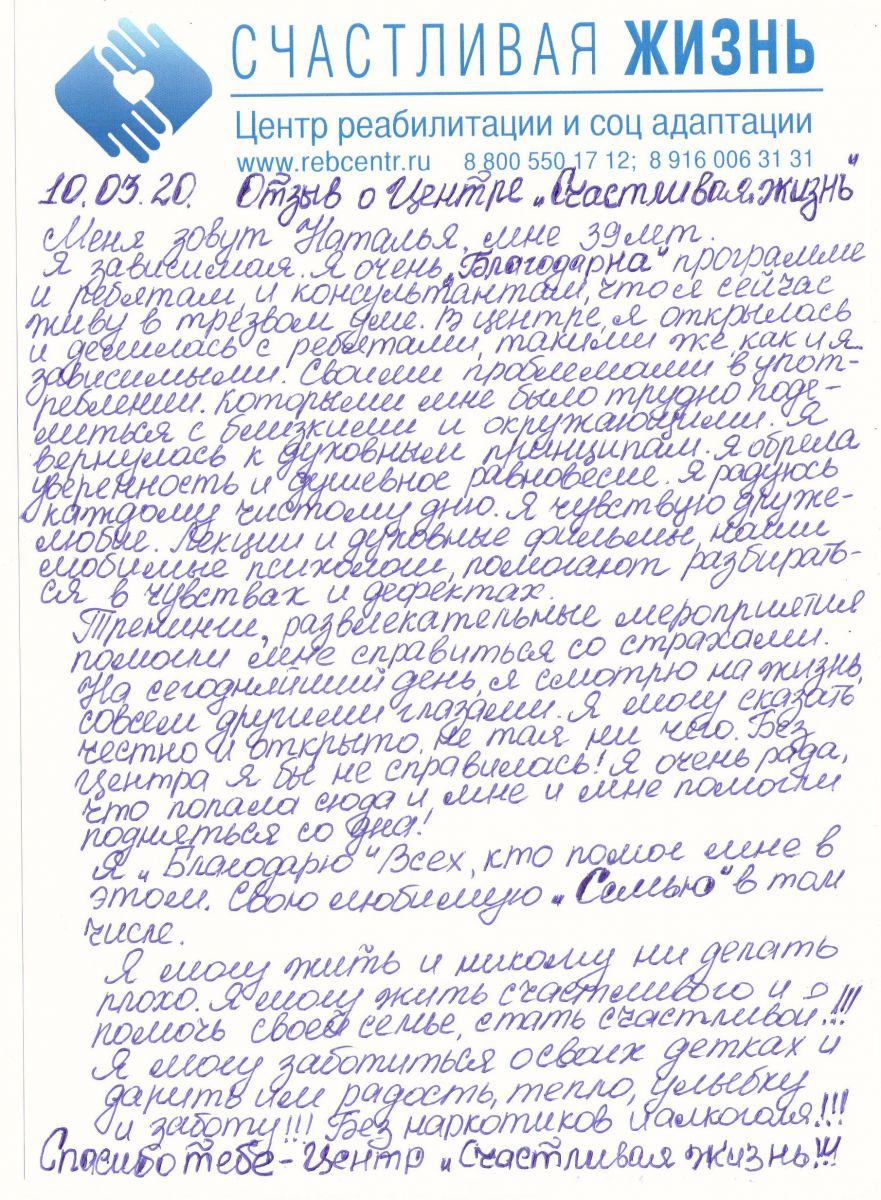 СЧАСТЛИВАЯ ЖИЗНЬ
Центр реабилитации и соц адаптации
www.rebcentr.ru 8 800 550 17 12; 8 916 006 31 31
10.03.20. Отзыв о Центре „Счастливая жизнь"
Меня зовут Наталья, мне 39 лет.
Я зависимая. Я очень „Благодарна" программе
и ребятам, и консультантам, что я сейчас
живу в трезвом уме. В центре, я открылась
и делилась с ребятами, такими же, как и я
зависимыми. Своими проблемами в упот-
реблении. Которыми мне было трудно поде-
литься с близкими и окружающими. Я
вернулась к духовным принципам. Я обрела
уверенность и душевное равновесие. Я радуюсь
каждому чистому дню. Я чувствую друже-
любие. Лекции и духовные фильмы, наши
любимые психологи, помогают разбирать-
ся в чувствах и дефектах.
Тренинги, развлекательные мероприятия
помогли мне справиться со страхами.
На сегодняйший день, я смотрю на жизнь,
совсем другими глазами. Я могу сказать
честно и открыто, не тая ни чего. Без
Центра я бы не справилась! Я очень рада,
что попала сюда и, мне и мне помогли
подняться со дна!
Я „Благодарю" Всех, кто помог мне в
этом. Свою любимую „Семью" в том
числе.
Я могу жить и никому ни делать
плохо. Я могу жить счастливого и
помочь своей семье, стать счастливой!!!
Я могу заботиться о своих детках и
дарить им радость, тепло, улыбку
и заботу!!! Без наркотиков и алкоголя!!!
Спасибо тебе - Центр „Счастливая жизнь"!!!